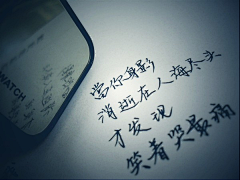 WATCH
當你身影
消逝在人海尽头
才发现
笑着哭最痛